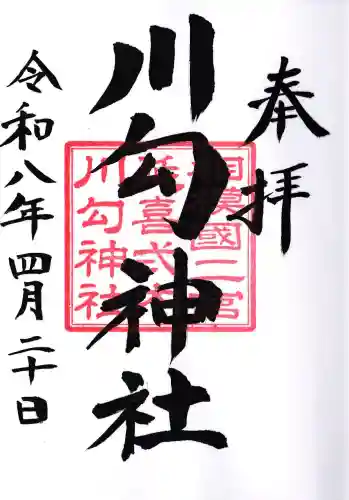 奉拝
川勾神社
相模國二宮
延喜式内
川勾神社
令和八年四月二十日